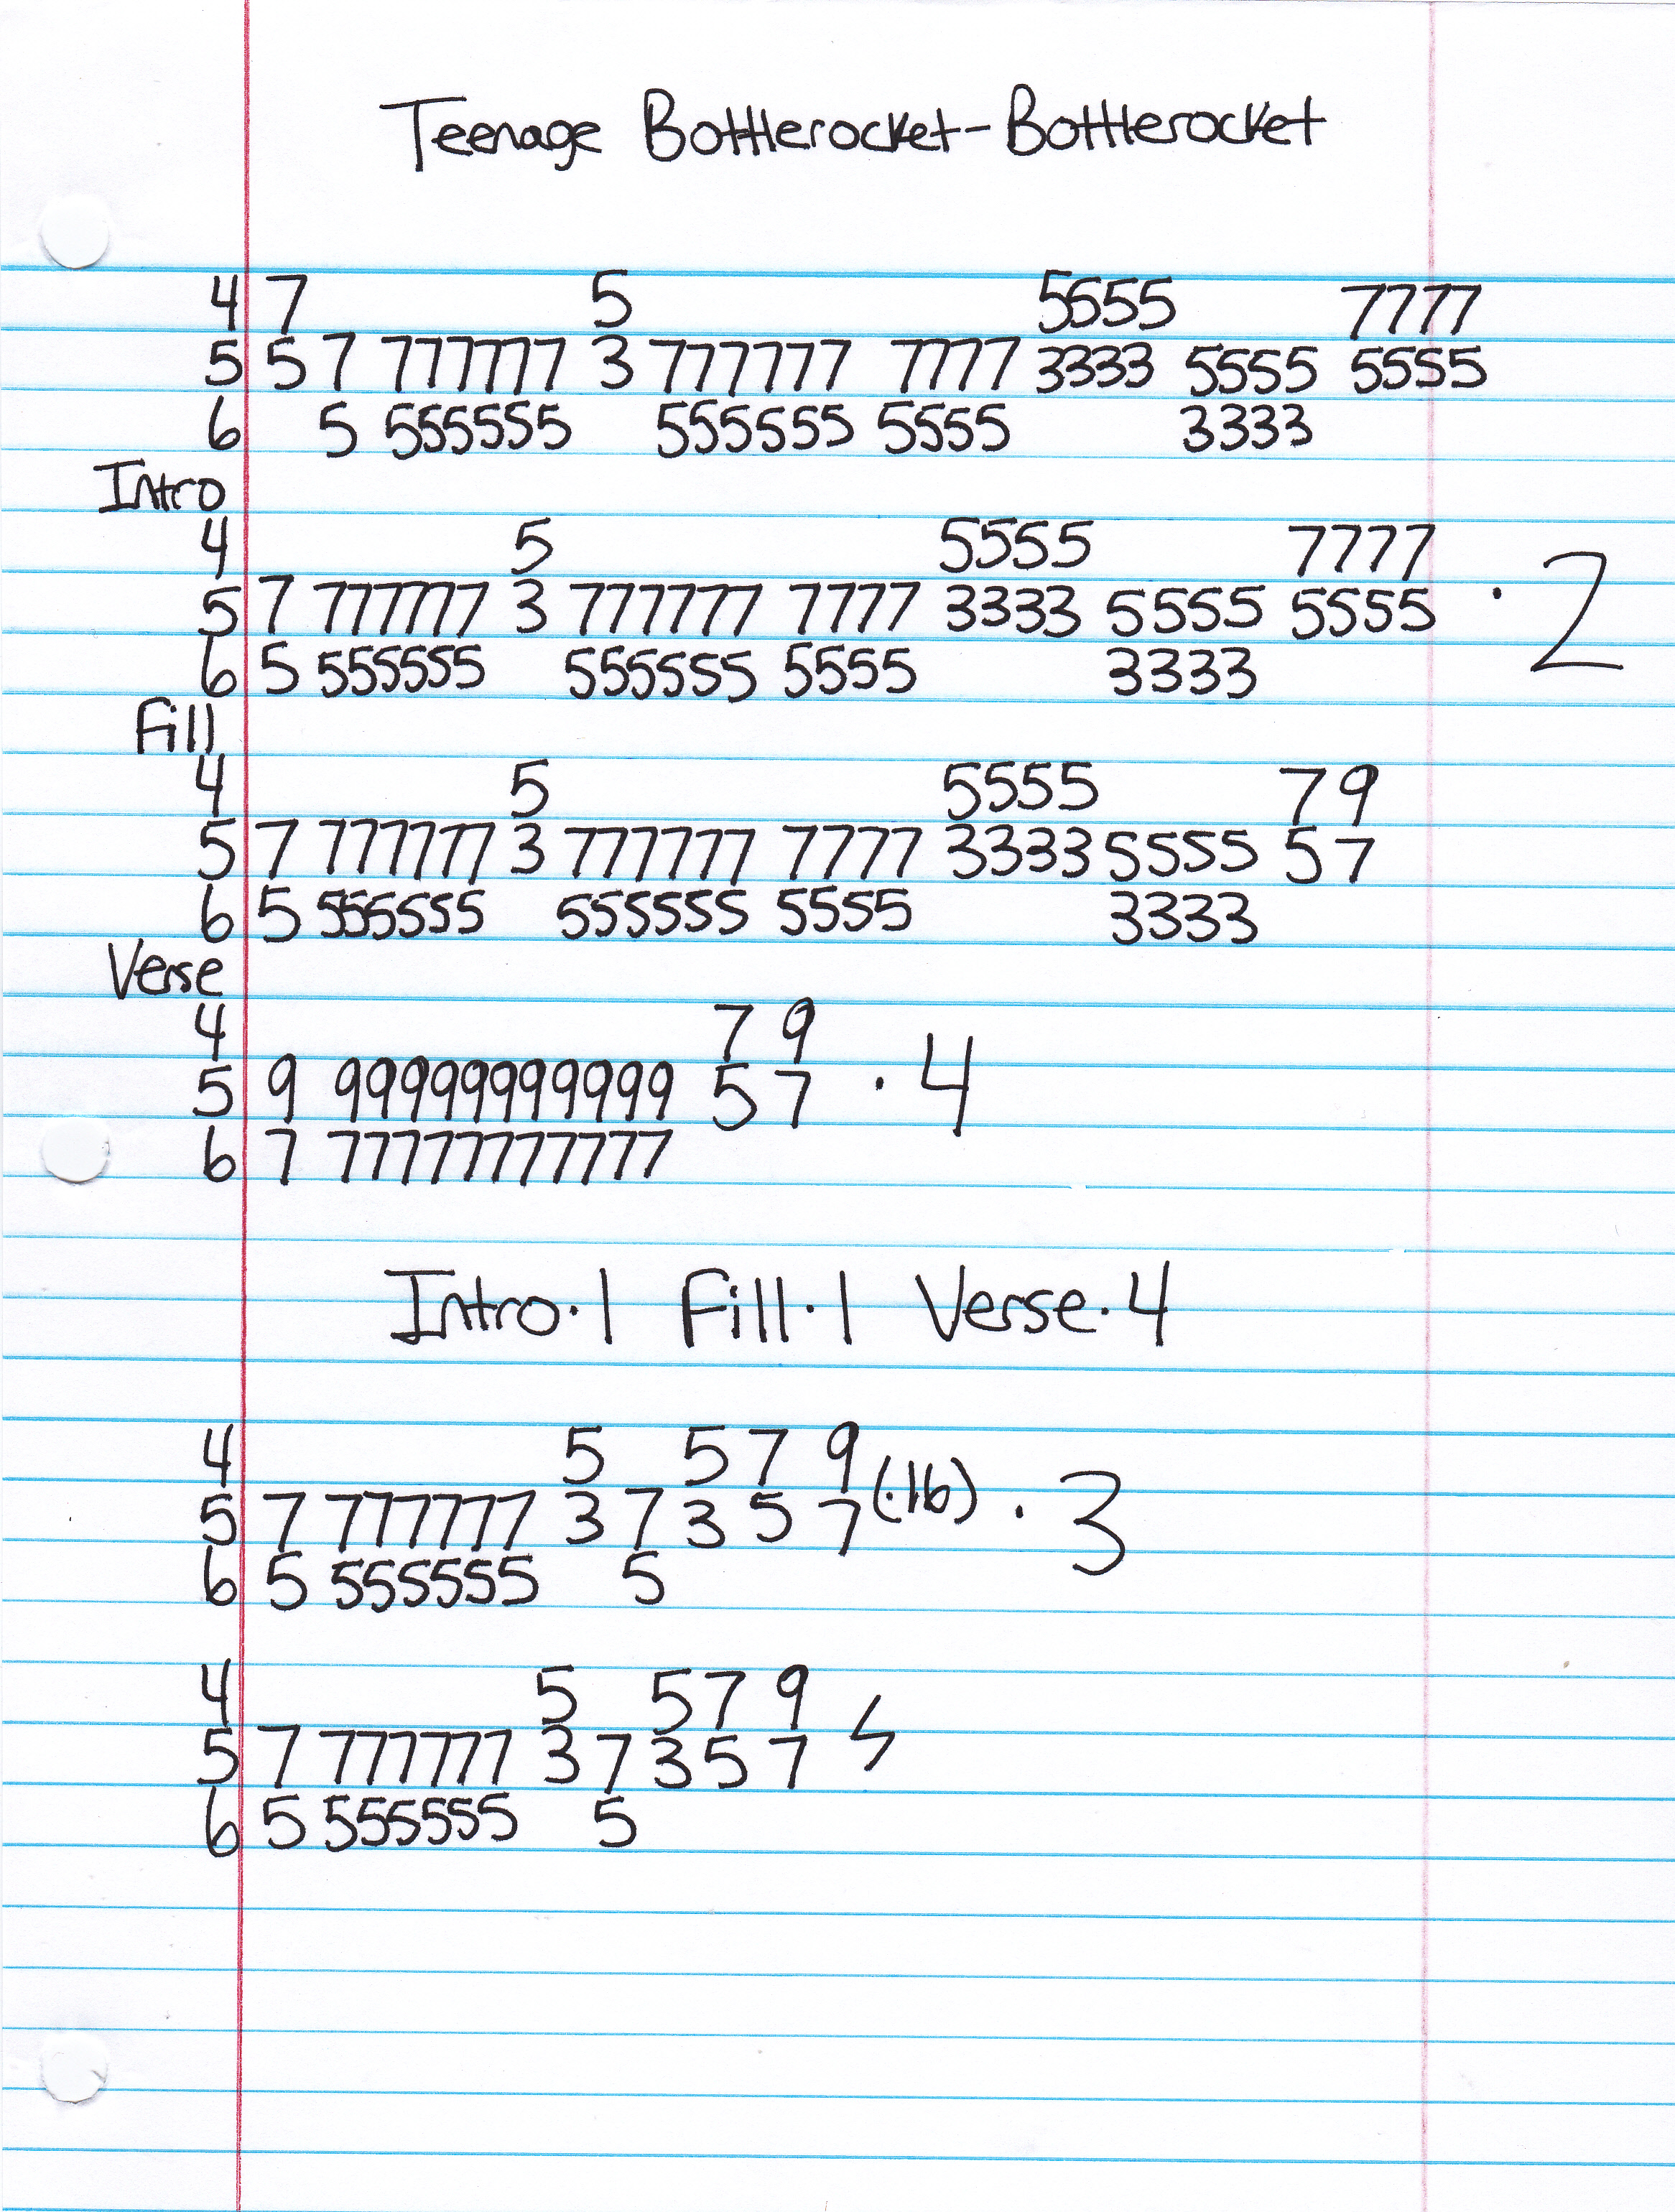 Teenage Bottlerocket-Bottlerocket
4 7 5 5555 7777
5 5 7 777777 3 777777 7777 3333 5555 5555
6 5 555555 555555 5555 3333
Intro
4 5 5555 7777
5 7 777777 3 777777 7777 3333 5555 5555 · 2
6 5 555555 555555 5555 3333
Fill
4 5 5555 7 9
5 7 777777 3 777777 7777 3333 5555 5 7
6 5 555555 555555 5555 3333
Verse
4 7 9
5 9 99999999999 5 7 · 4
6 7 77777777777
Intro·1 Fill·1 Verse·4
4 5 5 7 9
5 7 777777 3 7 3 5 7 (·16) · 3
6 5 555555 5
4 5 5 7 9
5 7 777777 3 7 3 5 7
6 5 555555 5